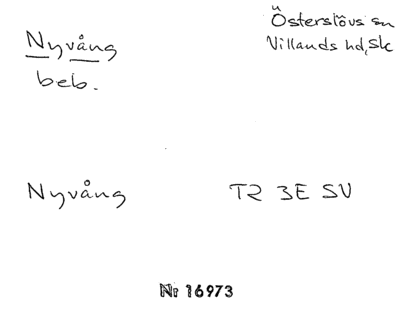 Nyvång
beb.
Österslövs sn
Villands hd, Sk
Nyvång
TR 3E SV
Nr 16973